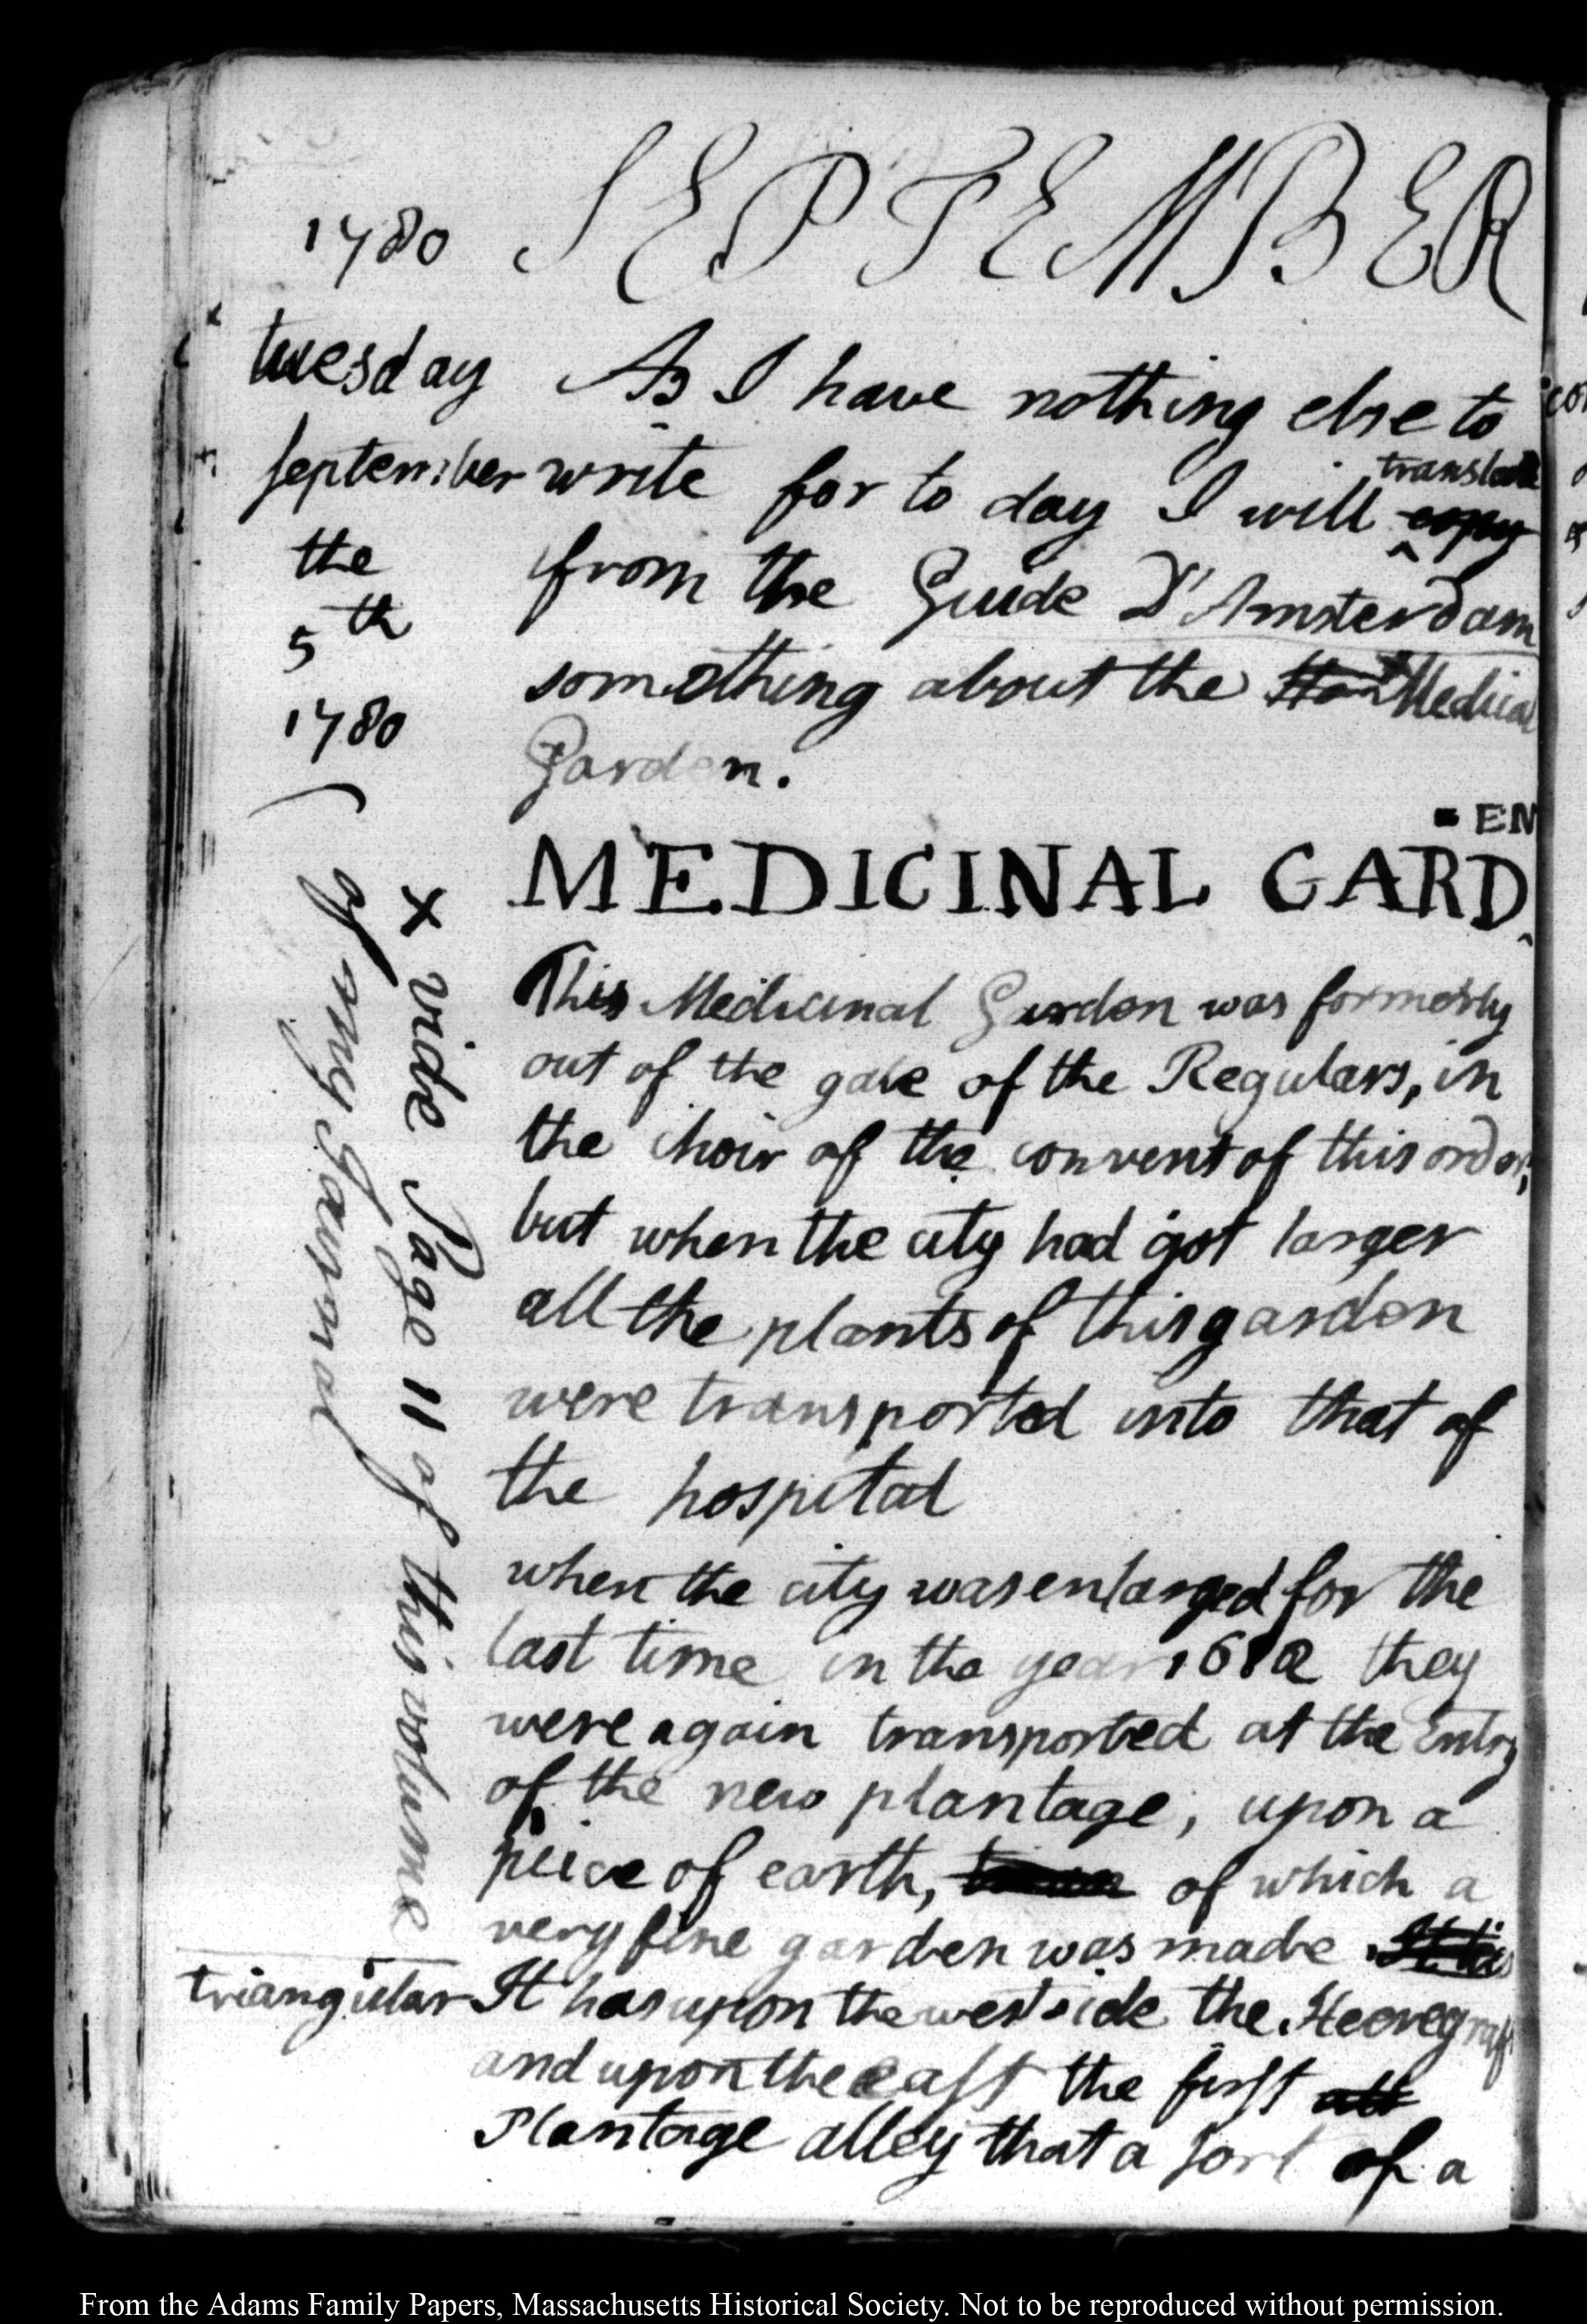 1780 SEPTEMBER
tuesday
september
the
5th
1780
As I have nothing else to
write for to day I will copy translate
from the Guide D'Amsterdam
something about the Medical
Garden.
MEDICINAL GARD-EN
This Medicinal Garden was formerly
out of the gate of the Regulars, in
the choir of the convent of this order;
but when the city had got larger
all the plants of this garden
were transported into that of
the hospital
when the city was enlarged for the
last time in the year they
were again transported at the Entry
of the new plantage, upon a
peice of earth, of which a
very fine garden was made It is
It has upon the west side the Heeregraft
and upon the east the first all
Plantage alley that a sort of a
triangular
x vide Page 11 of this volume
of my Journal
From the Adams Family Papers, Massachusetts Historical Society. Not to be reproduced without permission.